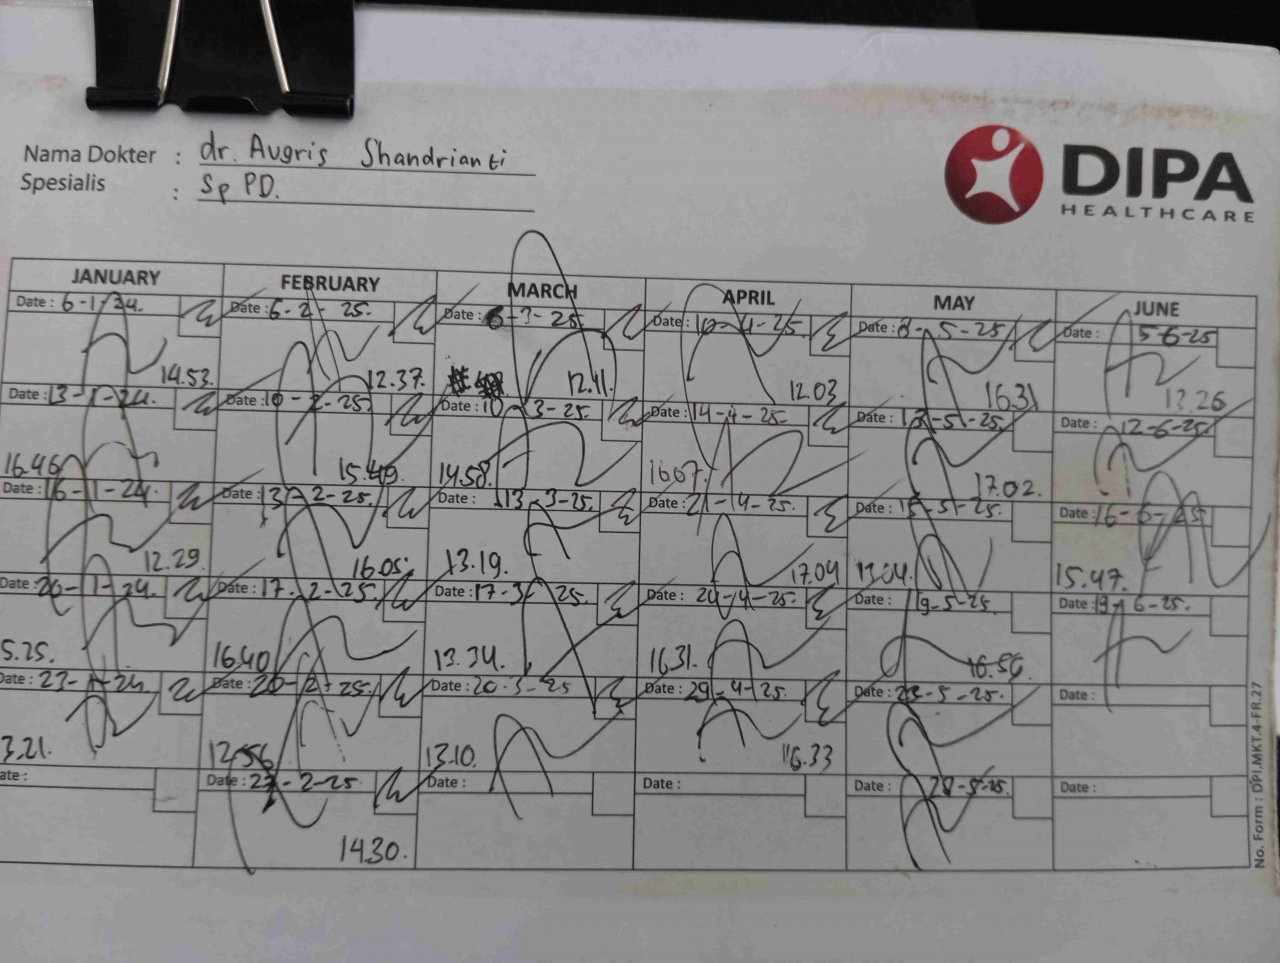 Nama Dokter : dr. Augris Shandrianti
Spesialis : Sp PD.
DIPA
HEALTHCARE
JANUARY FEBRUARY MARCH APRIL MAY JUNE
Date : 6-1-24. Date : 6-2-25. Date : 6-3-25. Date : 10-4-25 Date : 8-5-25 Date : 5-6-25
14.53. 12.37. 12.11. 12.03 16.31 13.26
Date : 13-1-24. Date : 10-2-25. Date : 10-3-25. Date : 14-4-25. Date : 13-5-25. Date : 12-6-25
16.46 15.49. 14.58. 16.07. 17.02.
Date : 16-1-24. Date : 13-2-25. Date : 13-3-25. Date : 21-4-25. Date : 15-5-25. Date : 16-6-25
12.29. 16.05. 13.19. 17.04 13.04. 15.47.
Date : 20-1-24. Date : 17-2-25. Date : 17-3-25. Date : 24-4-25. Date : 19-5-25. Date : 19-6-25.
5.25. 16.40 13.34. 16.31. 16.56.
Date : 23-1-24. Date : 20-2-25. Date : 20-3-25 Date : 29-4-25. Date : 23-5-25. Date :
3.21. 12.56 13.10. 16.33
ate : Date : 27-2-25. Date : Date : Date : 28-5-25. Date :
14.30.
No. Form : DPI.MKT.4-FR.27